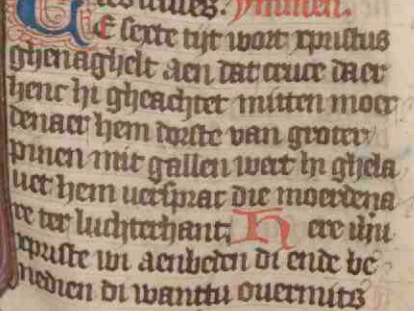 ymnen.
Te sexte tijt wort xpristus
ghenaghelt aen dat cruce daer
henc hi gheachtet mitten moer
denaer hem dorste van groter
pinen mit gallen wert hi ghela
uet hem uersprac die moerdena
re ter luchterhant. Here ihu
xpriste wi aenbeden di ende be
nedien di wanttu ouermits